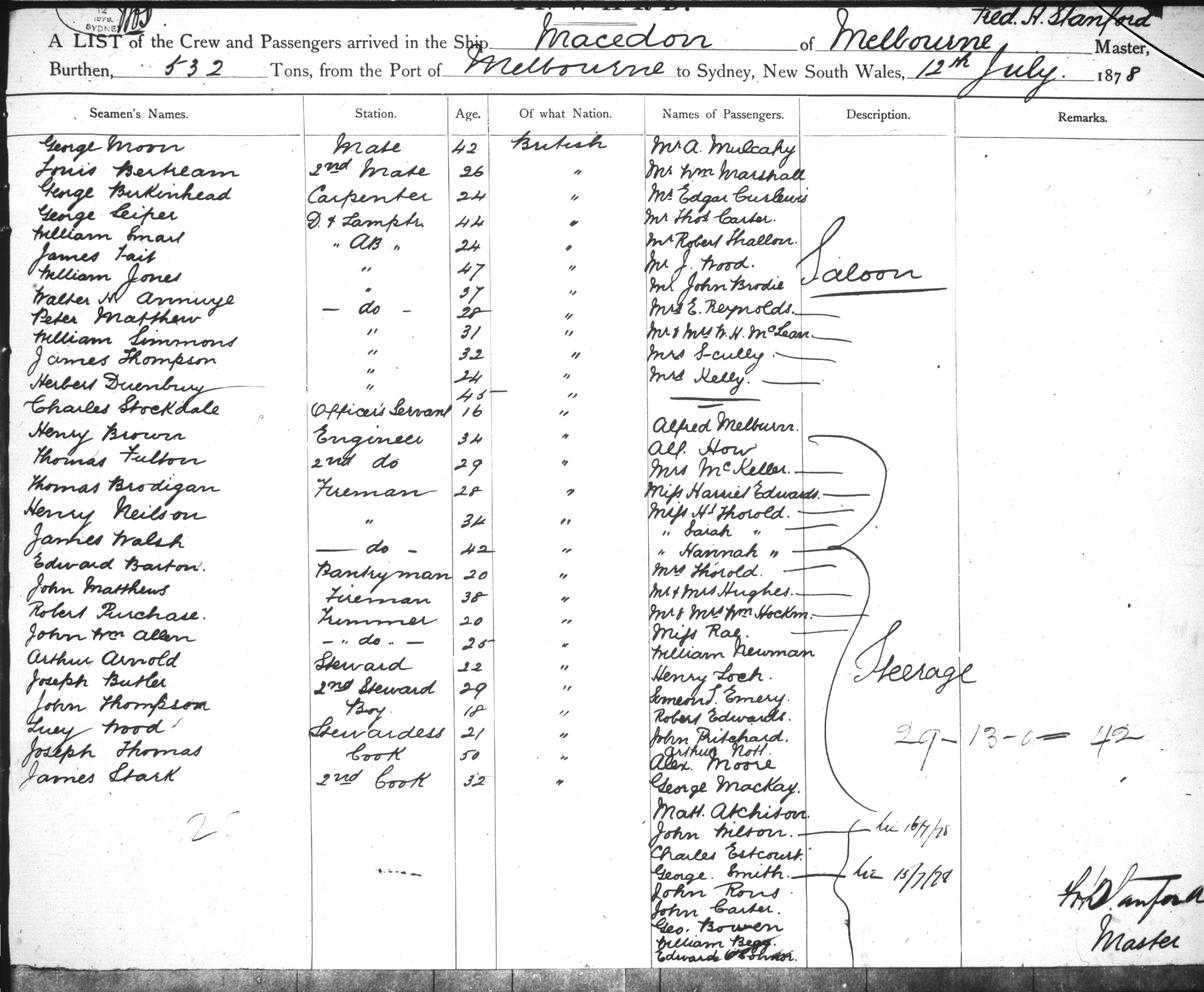 INWARD.
12
1878
SYDNEY
Fred. H. Stanford
A LIST of the Crew and Passengers arrived in the Ship Macedon of Melbourne Master,
Burthen, 532 Tons, from the Port of Melbourne to Sydney, New South Wales, 12th July. 1878
Seamen's Names. Station. Age. Of what Nation. Names of Passengers. Description. Remarks.
George Moon Mate 42 British Mr A. Mulcahy
Louis Bertream 2nd Mate 26 " Mr Wm Marshall
George Birkinhead Carpenter 24 " Mr Edgar Curlewis
George Leiper D. & Lamptr. 44 " Mr Thos Carter.
William Smart " AB " 24 " Mr Robert Shallon.
James Tait " 47 " Mr J. Wood. Saloon
William Jones " 37 " Mr John Brodie
Walter H. Annuye — do - 28 " Mrs E. Reynolds.
Peter Matthew " 31 " Mr & Mrs W. H. McLean
William Simmons " 32 " Mrs Scully
James Thompson " 24 " Mrs Kelly.
Herbert Duenbury " 45 "
Charles Stockdale Officer's Servant 16 " Alfred Melburn.
Henry Brown Engineer 34 " Alf. How
Thomas Fulton 2nd do 29 " Mrs McKeller.
Thomas Brodigan Fireman 28 " Miss Harriet Edwards.
Henry Neilson " 34 " Miss Ht Thorold.
" Sarah "
James Walsh — do - 42 " " Hannah "
Edward Barton. Pantryman 20 " Mrs Thorold.
John Matthews Fireman 38 " Mr & Mrs Hughes.
Robert Purchase. Trimmer 20 " Mr & Mrs Wm Hockin.
Miss Rae.
John Wm Allen — " do .. — 25 " William Newman
Arthur Arnold Steward 22 " Henry Loch. Steerage
Joseph Butler 2nd Steward 29 " Emery.
John Thompson Boy. 18 " Robert Edwards.
Lucy Wood Stewardess 21 " John Pritchard. 29 - 13 - 0 = 42
Arthur Nott.
Joseph Thomas Cook 50 " Alex. Moore
James Stark 2nd Cook 32 " George MacKay.
Matt. Atchison.
John Wilson. 16/7/78
Charles Estcourt.
George Smith. 15/7/78
John Rous.
John Carter.
Geo. Bowen
William Begg.
Edward O'Connor.
Stanford
Master